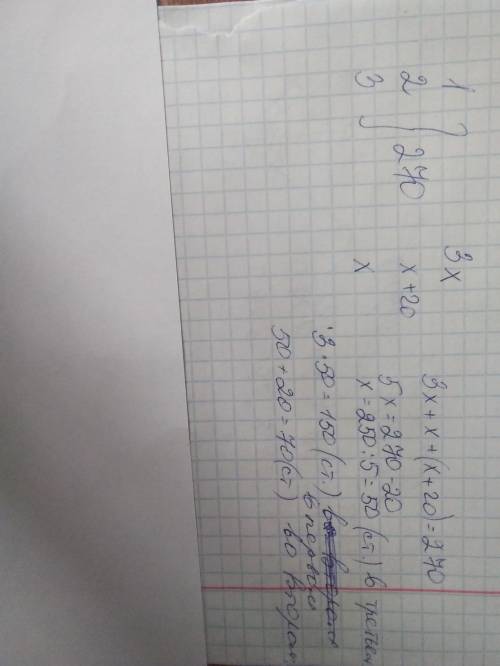 1 3x
2 } 270 x + 20
3 x
3x + x + (x + 20) = 270
5x = 270 - 20
x = 250 : 5 = 50 (ст.) в третьем
3 · 50 = 150 (ст.) в первом
50 + 20 = 70 (ст) во втором